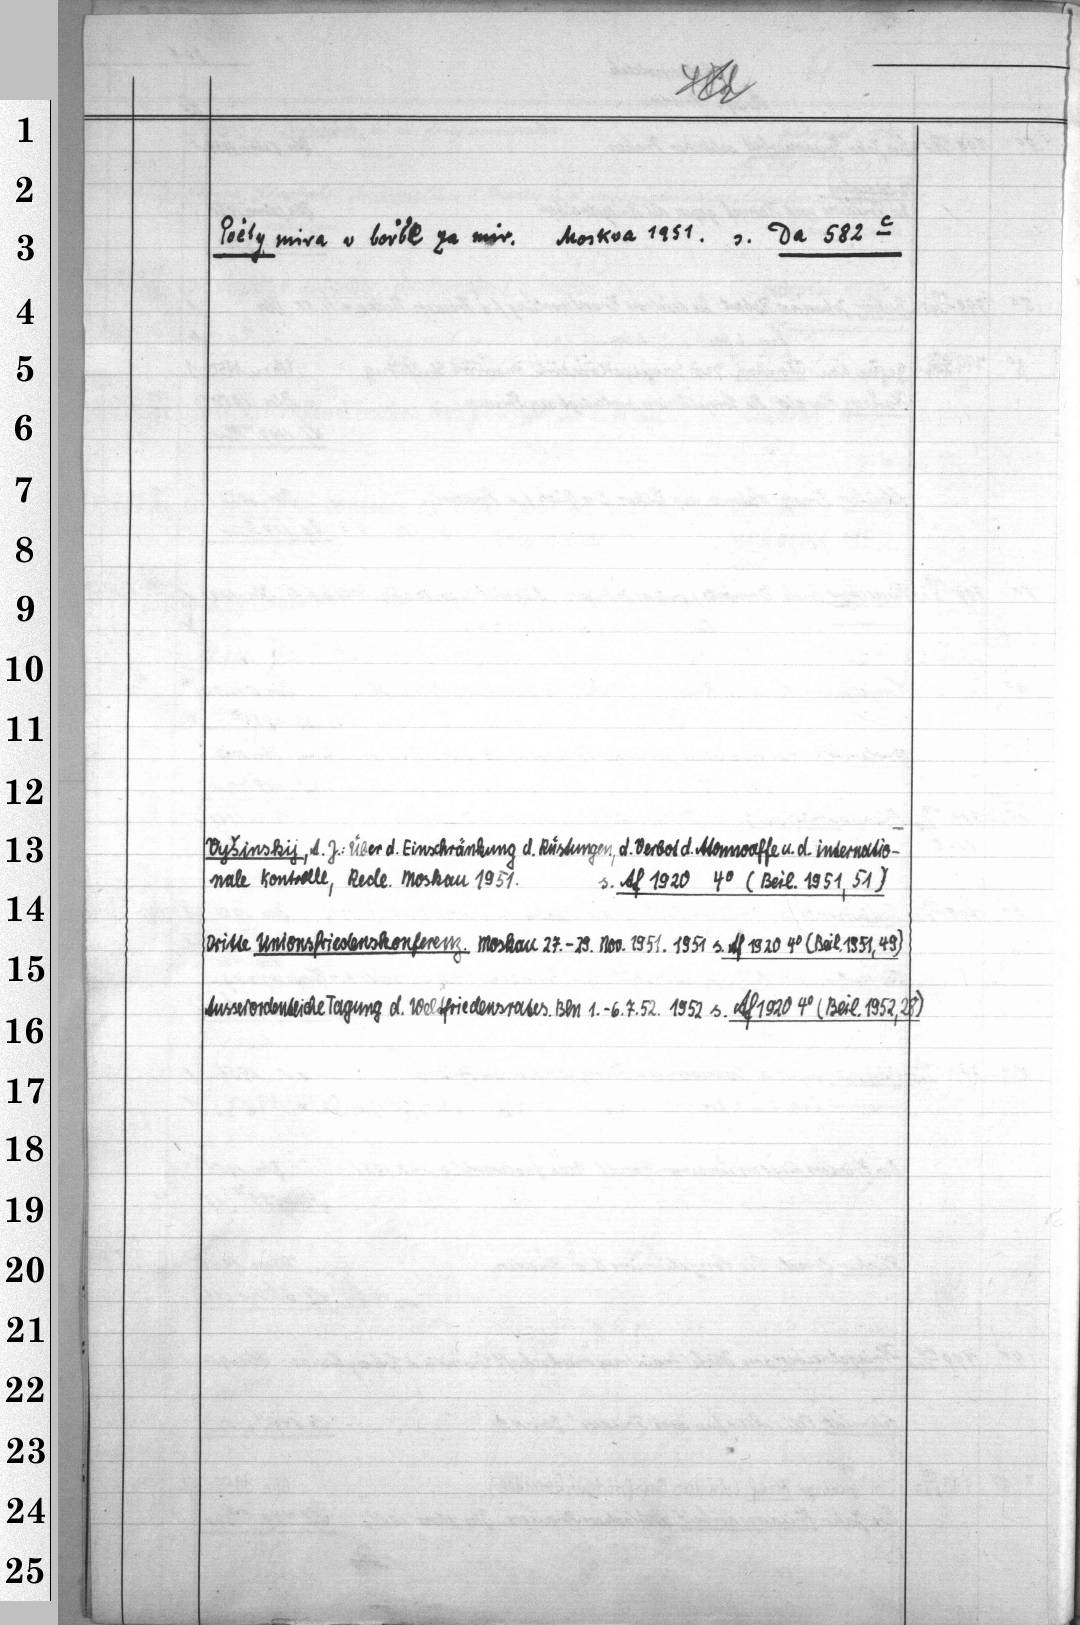 1
2
Poėty mira v bor'be za mir. Moskva 1951. s. Da 582 c
3
4
5
6
7
8
9
10
11
12
Vyšinskij, A. J.: Über d. Einschränkung d. Rüstungen, d. Verbot d. Atomwaffe u. d. internatio-
13
nale Kontrolle, Rede. Moskau 1951. s. Af 1920 4° (Beil. 1951, 51)
14
Dritte Unionsfriedenskonferenz. Moskau 27.-29. Nov. 1951. 1951 s. Af 1920 4° (Beil. 1951, 49)
15
Ausserordentliche Tagung d. Weltfriedensrates. Bln 1.-6.7.52. 1952 s. Af 1920 4° (Beil. 1952, 28)
16
17
18
19
20
21
22
23
24
25